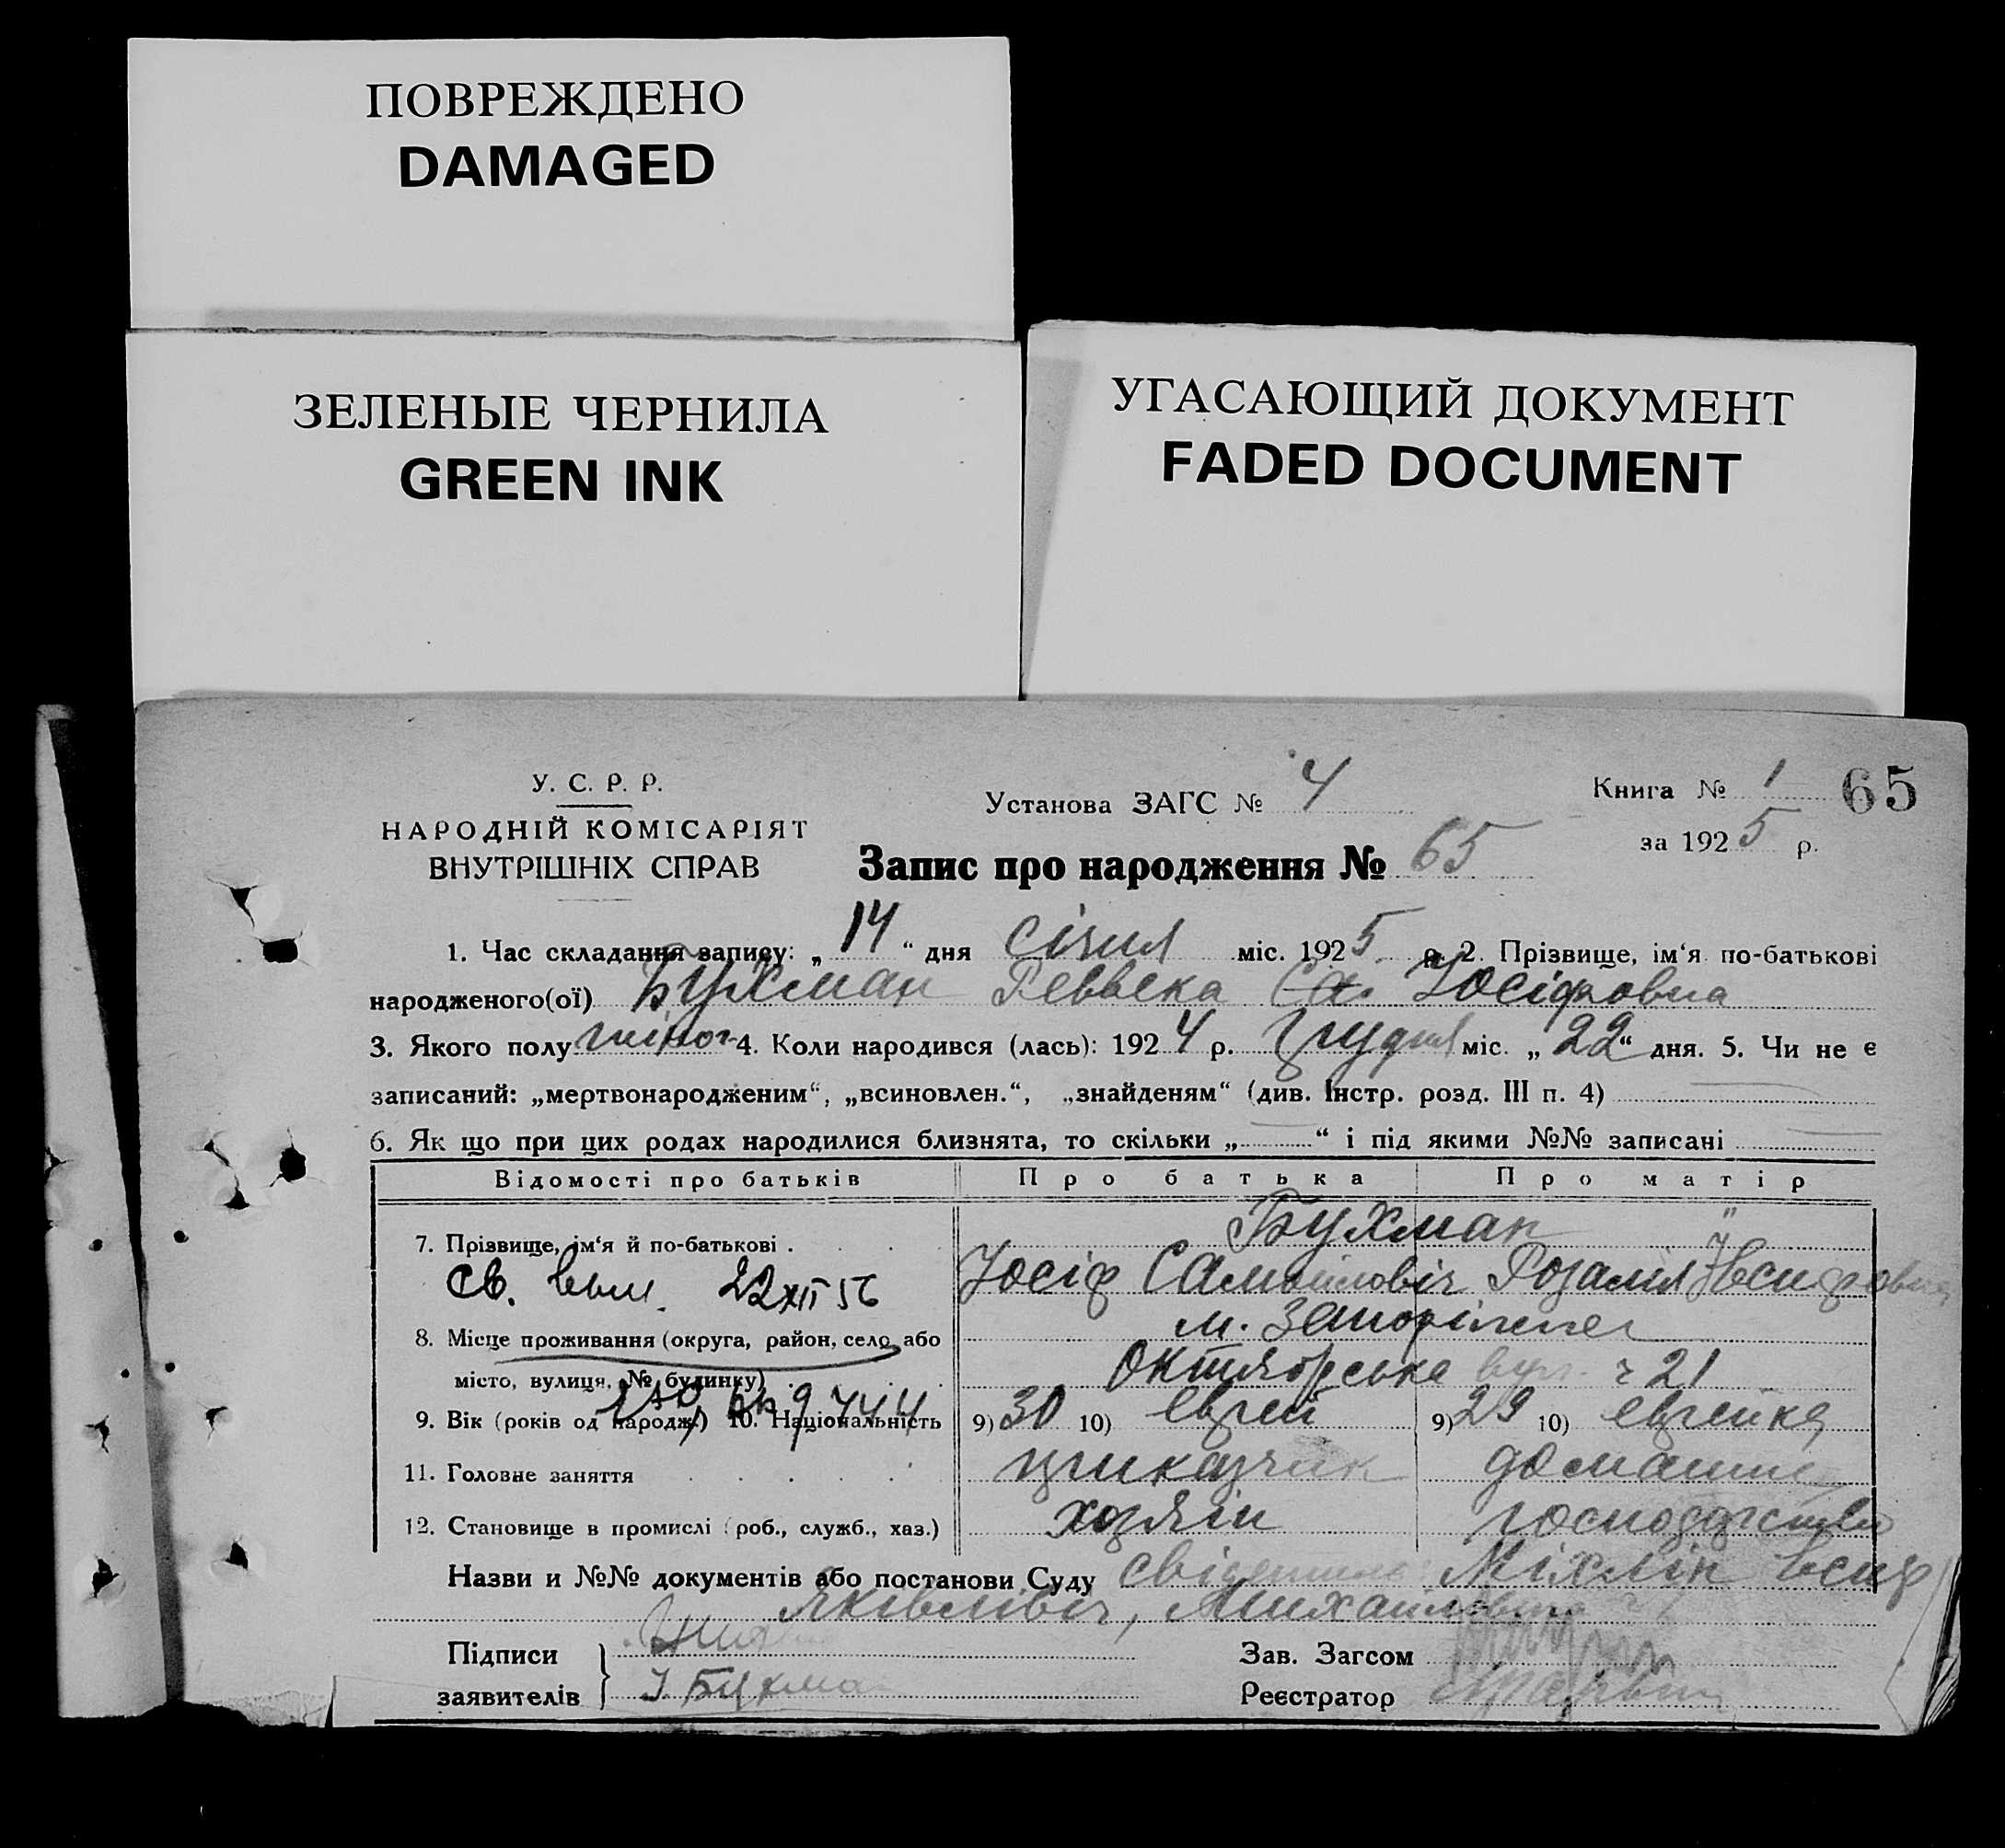 ПОВРЕЖДЕНО
DAMAGED
ЗЕЛЕНЫЕ ЧЕРНИЛА
GREEN INK
УГАСАЮЩИЙ ДОКУМЕНТ
FADED DOCUMENT
У. С. Р. Р.
НАРОДНІЙ КОМІСАРІЯТ
ВНУТРІШНІХ СПРАВ
Установа ЗАГС № 4
Книга № 1 65
за 1925 р.
Запис про народження № 65
1. Час складання запису: „14“ дня січня міс. 1925 р. 2. Прізвище, ім‘я по-батькові
народженого(ої) Бухман Реввека Са. Йосіфовна
3. Якого полу жіноч 4. Коли народився (лась): 1924 р. Грудня міс. „22“ дня. 5. Чи не є
записаний: „мертвонародженим“, „всиновлен.“, „знайденям“ (див. Інстр. розд. III п. 4)
6. Як що при цих родах народилися близнята, то скільки „ “ і під якими №№ записані
Відомості про батьків Про батька Про матір
7. Прізвище, ім‘я й по-батькові . Бухман "
Св. 22 XII 56 Йосіф Самойловіч Розалія
8. Місце проживання (округа, район, село, або м. Запоріжжя
місто, вулиця, № будинку) Октяборська вул. ч 21
9. Вік (років од народж.) 10. Національність 9) 30 10) Еврей 9) 29 10) еврейка
11. Головне заняття приказчик домашнє
12. Становище в промислі (роб., служб., хаз.) хозяін господарство
Назви и №№ документів або постанови Суду Міхлін
Яківловіч,
Підписи
заявителів І. Бухма
Зав. Загсом
Реєстратор